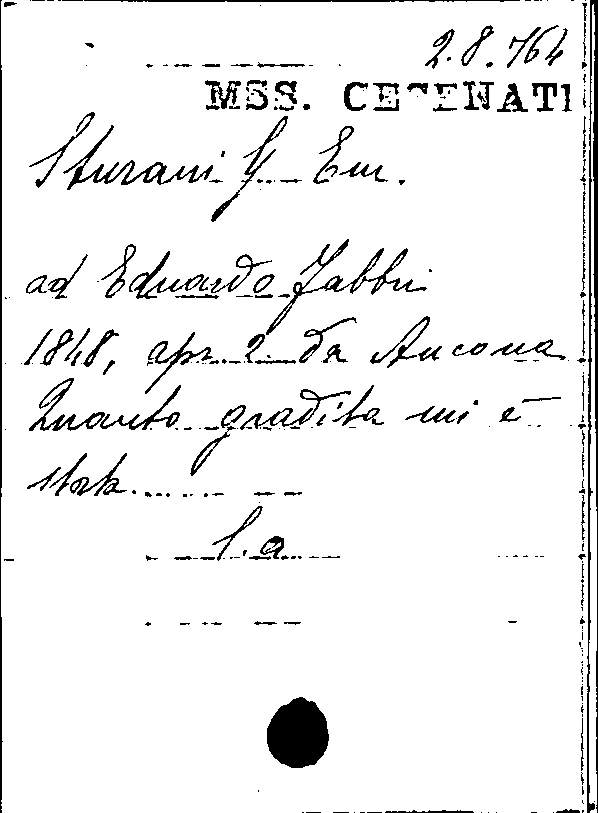 2.8.764
MSS. CESENATI
Sturani G. Em.
ad Eduardo Fabbri
1848, apr. 2. da Ancona
Quanto gradita mi è
stata......
l.a